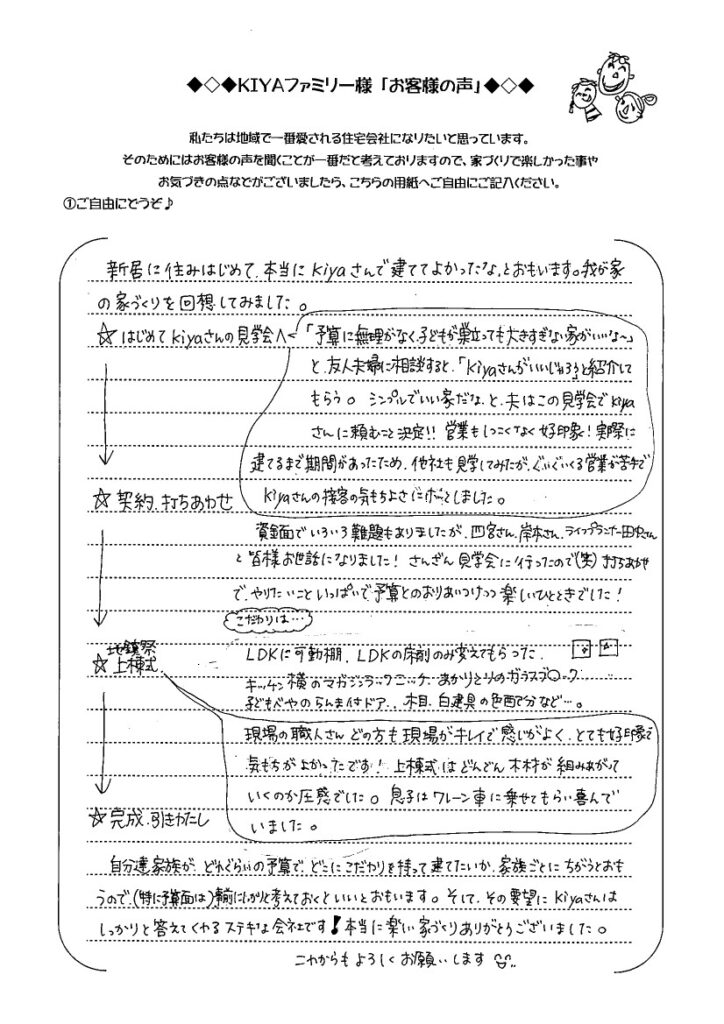 ◆◇◆KIYAファミリー様「お客様の声」◆◇◆
私たちは地域で一番愛される住宅会社になりたいと思っています。
そのためにはお客様の声を聞くことが一番だと考えておりますので、家づくりで楽しかった事や
お気づきの点などがございましたら、こちらの用紙へご自由にご記入ください。
①ご自由にどうぞ♪
新居に住みはじめて、本当にKiyaさんで建ててよかったな、とおもいます。我が家
の家づくりを回想してみました。
☆はじめてKiyaさんの見学会へ
「予算に無理がなく、子どもが巣立っても大きすぎない家がいいな〜」
と、友人夫婦に相談すると、「Kiyaさんがいいじゅろう」と紹介して
もらう。シンプルでいい家だな、と、夫はこの見学会でkiya
さんに頼むこと決定!!営業もしつこくなく好印象！実際に
建てるまで期間があったため、他社も見学してみたが、ぐいぐいくる営業が苦手で
Kiyaさんの接客の気もちよさにホッとしました。
☆契約、打ちあわせ
資金面でいろいろ難題もありましたが、四宮さん、岸本さん、ライフプランナー田中さん
と皆様お世話になりました！さんざん見学会に行ったので(笑)打ちあわせ
で、やりたいこといっぱいで予算とのおりあいつけつつ楽しいひとときでした！
こだわりは…
LDKに可動棚、LDKの床削のみ変えてもらった、
キッチン横のマガジンラックニッチ、あかりとりのガラスブロック
子どもべやのらんま付ドア、木目、白建具の色配分など…。
地鎮祭
☆上棟式
現場の職人さんどの方も現場がキレイで感じがよく、とても好印象で
気もちがよかったです！上棟式はどんどん木材が組みあがって
いくのが圧感でした。息子はクレーン車に乗せてもらい喜んで
いました。
☆完成、引きわたし
自分達家族が、どれぐらいの予算で、どこにこだわりを持って建てたいか、家族ごとにちがうとおも
うので、(特に予算面は)事前にしっかりと考えておくといいとおもいます。そして、その要望にKiyaさんは
しっかりと答えてくれるステキな会社です！本当に楽しい家づくりありがとうございました。
これからもよろしくお願いします